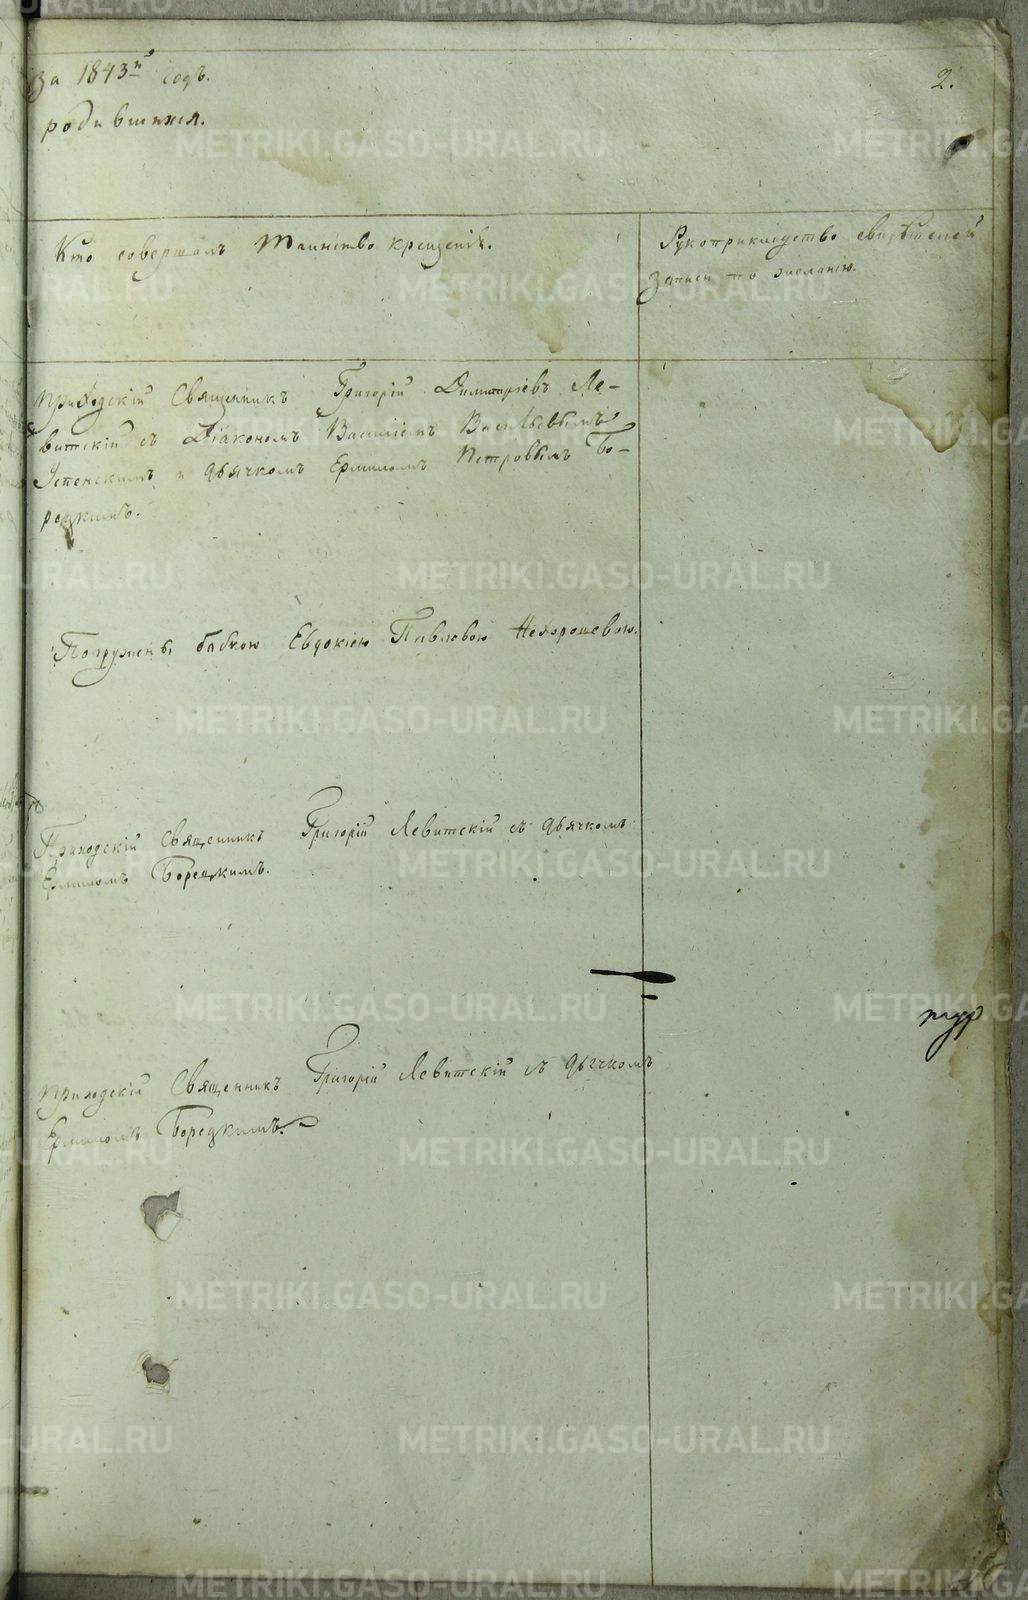 за 1843й годъ.
2.
родившихся.
Кто совершалъ таинство крещенія.
Рукоприкладство свидѣтелей
записи по желанію.
Приходскій Священникъ Григорій Димитріевъ Ле-
витскій съ Діакономъ Василіемъ Васильевымъ
Успенскимъ и дьячкомъ Ермиломъ Петровымъ Бо-
рецкимъ.
Погруженъ бабкою Евдокіею Павловою Нехорошевою.
Приходскій Священникъ Григорій Левитскій съ дьячкомъ
Ермиломъ Борецкимъ.
Приходскій Священникъ Григорій Левитскій съ дьячкомъ
Ермиломъ Борецкимъ.
METRIKI.GASO-URAL.RU